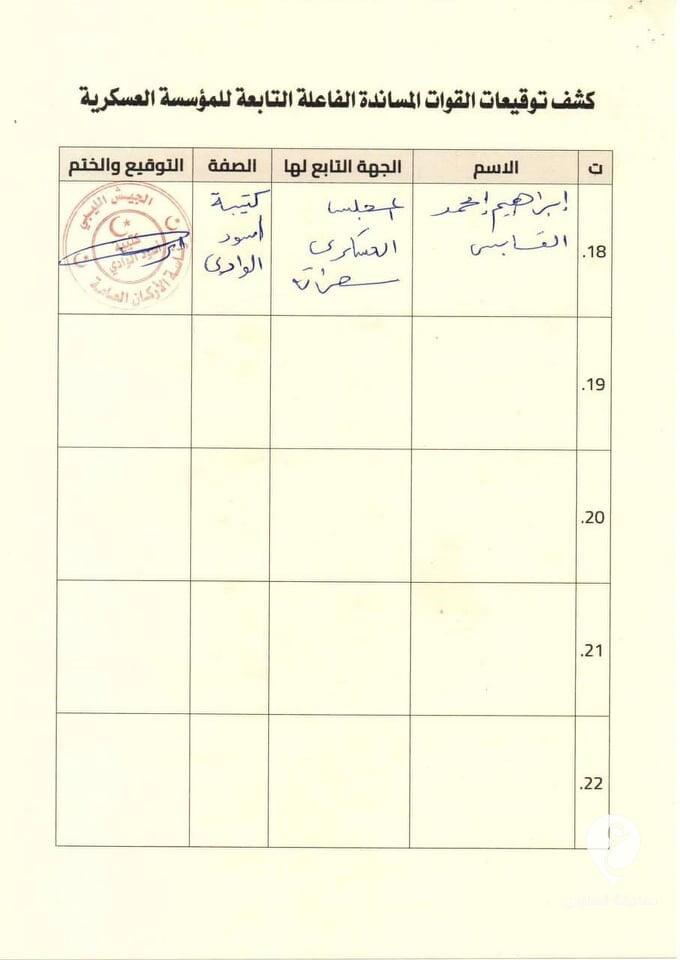 كشف توقيعات القوات المساندة الفاعلة التابعة للمؤسسة العسكرية
ت الاسم الجهة التابع لها الصفة التوقيع والختم
18. إبراهيم إمحمد المجلس كتيبة
العسكري أسود
الوادي
الجيش الليبي
كتيبة
أسود الوادي
رئاسة الأركان العامة
19.
20.
21.
22.